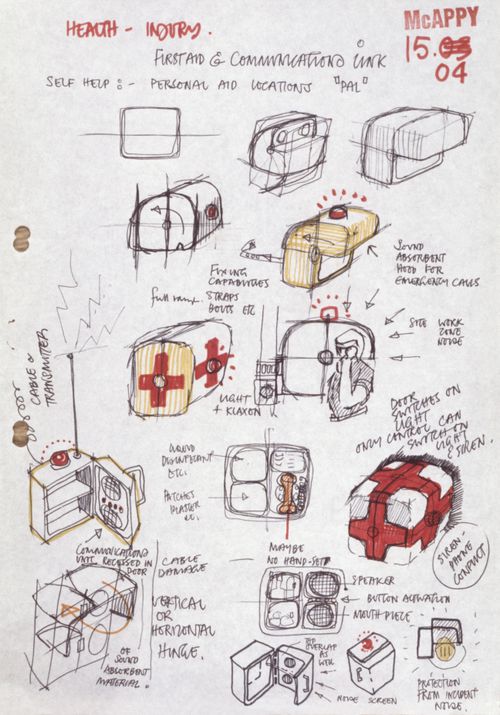 HEALTH - INJURY.
McAPPY
15.03
04
FIRST AID & COMMUNICATIONS LINK
SELF HELP :- PERSONAL AID LOCATIONS "PAL"
FIXING
CAPABILITIES
STRAPS
BOLTS ETC
SOUND
ABSORBENT
HOOD FOR
EMERGENCY CALLS
SITE WORK
ZONE
NOISE
CABLE OR
TRANSMITTER
LIGHT
+ KLAXON
DOOR
SWITCHES ON
LIGHT
ONLY CONTROL CAN
SWITCH ON
LIGHT &
SIREN.
LIQUID
DISINFECTANT
ETC.
PATCHES
PLASTER
COMMUNICATIONS
UNIT RECESSED IN
DOOR
CABLE
DAMAGE
MAYBE
NO HAND-SET
SIREN-
PHONE
CONFLICT
SPEAKER
BUTTON ACTIVATION
MOUTHPIECE
VERTICAL
OR
HORIZONTAL
HINGE.
OF
SOUND
ABSORBENT
MATERIAL.
TOP
OVERLAP AS
WELL
NOISE SCREEN
PROTECTION
FROM INCIDENT
NOISE.